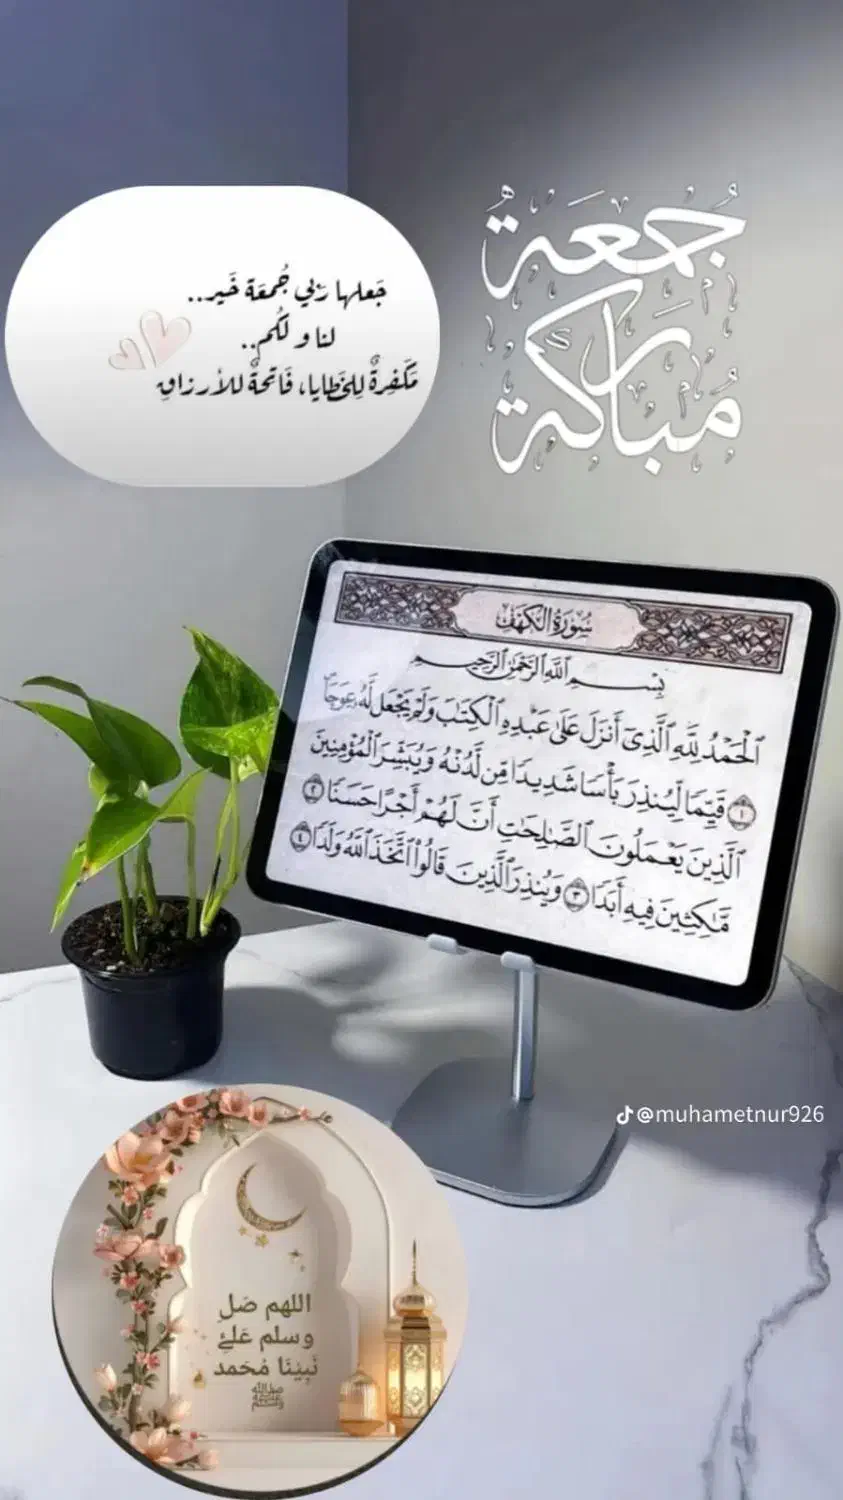 جُمعَة
مُبَاركة
جَعلها رَبي جُمعَة خَير..
لنا و لكُم..
مَكَفِرةٌ لِلخَطايا، فَاتحةٌ للأرزاقِ
سُورَةُ الكَهْفِ
بِسْمِ ٱللَّهِ ٱلرَّحْمَٰنِ ٱلرَّحِيمِ
ٱلْحَمْدُ لِلَّهِ ٱلَّذِىٓ أَنزَلَ عَلَىٰ عَبْدِهِ ٱلْكِتَٰبَ وَلَمْ يَجْعَل لَّهُۥ عِوَجَا
١ قَيِّمًا لِّيُنذِرَ بَأْسًا شَدِيدًا مِّن لَّدُنْهُ وَيُبَشِّرَ ٱلْمُؤْمِنِينَ
ٱلَّذِينَ يَعْمَلُونَ ٱلصَّٰلِحَٰتِ أَنَّ لَهُمْ أَجْرًا حَسَنًا ٢
مَّٰكِثِينَ فِيهِ أَبَدًا ٣ وَيُنذِرَ ٱلَّذِينَ قَالُوا۟ ٱتَّخَذَ ٱللَّهُ وَلَدًا ٤
@muhametnur926
اللهم صَلِ
وسلم عَلىٰ
نَبِيْنَا مُحَمد
ﷺ